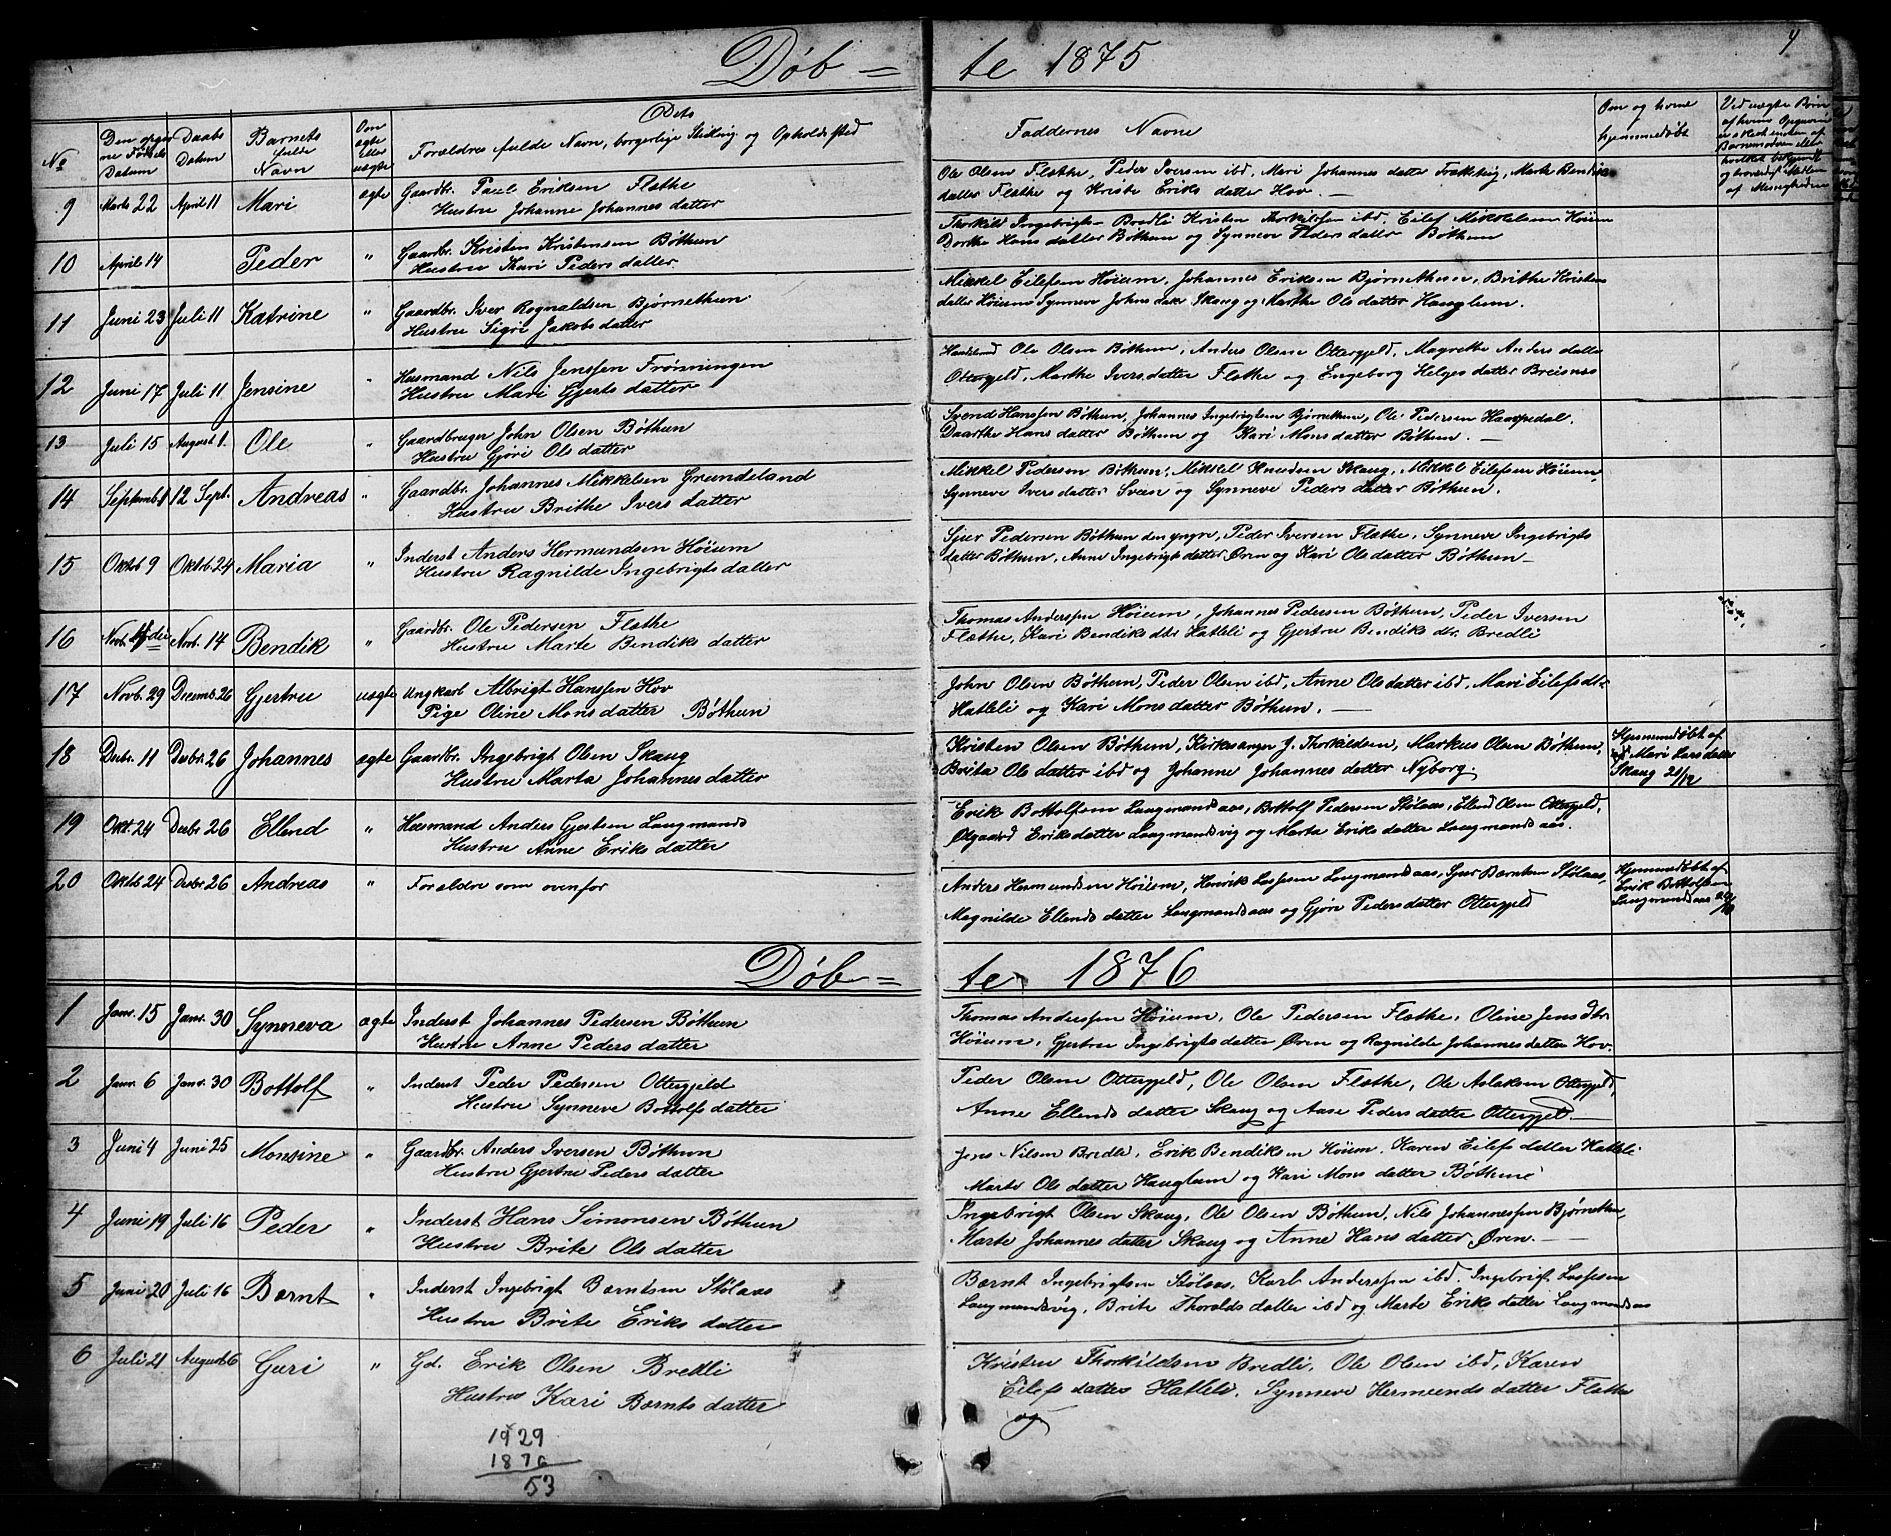 Døb = te 1875
No
Den opgiv
ne Fødsels
Datum
Daabs
Datum
Barnets
fulde
Navn
Om
ægte
eller
uægte
Dets
Forældres fulde Navn, borgerlige Stilling og Opholdssted
Faddernes Navne
Om og hvem
hjemmedøbt
9 Marts 22 April 11 Mari ægte Gaardbr. Paul Eriksen Flathe
Hustru Johanne Johannes datter
Ole Olsen Flathe, Peder Iversen ibd, Mari Johannes datter Marte Bendiks
datter Flathe og Kristi Eriks datter Hov. —
10 April 14 Peder " Gaardbr. Kristen Kristensen Bøthun
Hustru Kari Peders datter
Thorkild Ingebrigts- Bredli Kristen Thorkildsen ibd. Eilef Mikkelsen Høium
Dorthe Hans datter Bøthun og Synneve Peders datter Bøthun
11 Juni 23 Juli 11 Katrine " Gaardbr. Iver Rognaldsen Bjørnethun
Hustru Sigri Jakobs datter
Mikkel Eilefsen Høium, Johannes Eriksen Bjørnethun, Brithe Kristens
datter Høium Synneve Johns datr Skaug og Marthe Ols datter Hauglum.
12 Juni 17 Juli 11 Jensine " Husmand Nils Jenssen Frønningen
Hustru Mari Gjerts datter
Ole Olsen Bøthun, Anders Olsen Ottergjeld, Magrethe Anders datter
Ottergjeld, Marthe Ivers datter Flathe og Engeborg Helges datter Breisnes
13 Juli 15 August 1. Ole " Gaardbruger John Olsen Bøthun
Hustru Gjøri Ols datter
Svend Hanssen Bøthun, Johannes Ingebrigtsen Bjørnethun, Ole Pedersen
Daarthe Hans datter Bøthun og Kari Mons datter Bøthun. —
14 Septemb 1 12 Sept. Andreas " Gaardbr. Johannes Mikkelsen Grundeland
Hustru Brithe Ivers datter
Mikkel Pedersen Bøthun, Mikkel Knudsen Skaug, Mikkel Eilefsen Høium,
Synneve Ivers datter Sveen og Synneve Peders datter Bøthun.
15 Oktbr 9 Oktbr. 24 Maria " Inderst Anders Hermundsen Høium
Hustru Ragnilde Ingebrigts datter
Sjur Pedersen Bøthun den yngre, Peder Iversen Flathe, Synneve Ingebrigts
datter Bøthun, Anne Ingebrigts datter Øren og Kari Ols datter Bøthun —
16 Novb. Novb. 14 Bendik " Gaardbr. Ole Pedersen Flathe
Hustru Marte Bendiks datter
Thomas Anderssen Høium, Johannes Pedersen Bøthun, Peder Iversen
Flathe, Kari Bendiks dtr Hatleli og Gjertru Bendiks dtr. Bredli
17 Novb. 29 Decemb. 26 Gjertru uægte Ungkarl Albrigt Hanssen Hov
Pige Oline Mons datter Bøthun
John Olsen Bøthun, Peder Olsen ibd, Anne Ols datter ibd, Mari Eilefs dtr.
Hatleli og Kari Mons datter Bøthun. —
18 Decbr. 11 Decbr. 26 Johannes ægte Gaardbr. Ingebrigt Olsen Skaug
Hustru Marta Johannes datter
Kristen Olsen Bøthun, Kirkesanger J. Thorkildsen, Markus Olsen Bøthun,
Brita Ols datter ibd og Johanne Johannes datter Nyborg.
Hjemmedøbt af
Mari Lars datter
Skaug 21/12
19 Okt. 24 Decbr 26 Ellend " Husmand Anders Gjertsen Laugmands
Hustru Anne Eriks datter
Erik Bottolfsen Laugmandsaas, Bottolf Pedersen Stølaas, Ellend Olsen Ottergjeld,
Olgaard Eriks datter Laugmandsvig og Marta Eriks datter Laugmandsaas.
20 Oktbr 24 Decbr 26 Andreas " Forældre som ovenfor
Anders Hermundsen Høium, Henrik Lassesen Laugmandsaas, Sjur Berntsen Stølaas,
Magnilde Ellends datter Laugmandsaas og Gjøri Peders datter Ottergjeld
Hjemmedøbt af
Erik Bottolfsen
Laugmandsaas
Døb = te 1876
1 Janr. 15 Janr. 30 Synneva ægte Inderst Johannes Pedersen Bøthun
Hustru Anne Peders datter
Thomas Anderssen Høium, Ole Pedersen Flathe, Oline Jens dtr.
Høium, Gjertru Ingebrigts datter Øren og Ragnilde Johannes datter Hov.
2 Janr. 6 Janr. 30 Bottolf " Inderst Peder Pedersen Ottergjeld
Hustru Synneve Bottolfs datter
Peder Olsen Ottergjeld, Ole Olsen Flathe, Ole Aslaksen Ottergjeld,
Anne Ellends datter Skaug og Aase Peders datter Ottergjeld. —
3 Juni 4 Juni 25 Monsine " Gaardbr. Anders Iversen Bøthun
Hustru Gjertru Peders datter
Jens Nilsen Bredli, Erik Bendiksen Høium, Karen Eilefs datter Hatleli
Marte Ols datter Hauglum og Kari Mons datter Bøthun
4 Juni 19 Juli 16 Peder " Inderst Hans Simonsen Bøthun
Hustru Brite Ols datter
Ingebrigt Olsen Skaug, Ole Olsen Bøthun, Nils Johannessen Bjørnethun,
Marte Johannes datter Skaug og Anne Hans datter Øren. —
5 Juni 20 Juli 16 Bernt " Inderst Ingebrigt Berntsen Stølaas
Hustru Brite Eriks datter
Bernt Ingebrigtsen Stølaas, Karl Anderssen ibd. Ingebrigt Lassesen
Laugmandsvig, Brite Thoralds datter ibd og Marte Eriks datter Laugmandsaas
6 Juli 21 August 6 Guri " Gd. Erik Olsen Bredli
Hustru Kari Bernts datter
Kristen Thorkildsen Bredli, Ole Olsen ibd, Karen
Eilefs datter Hatleli, Synneve Hermunds datter Flathe
og
1929
1876
53